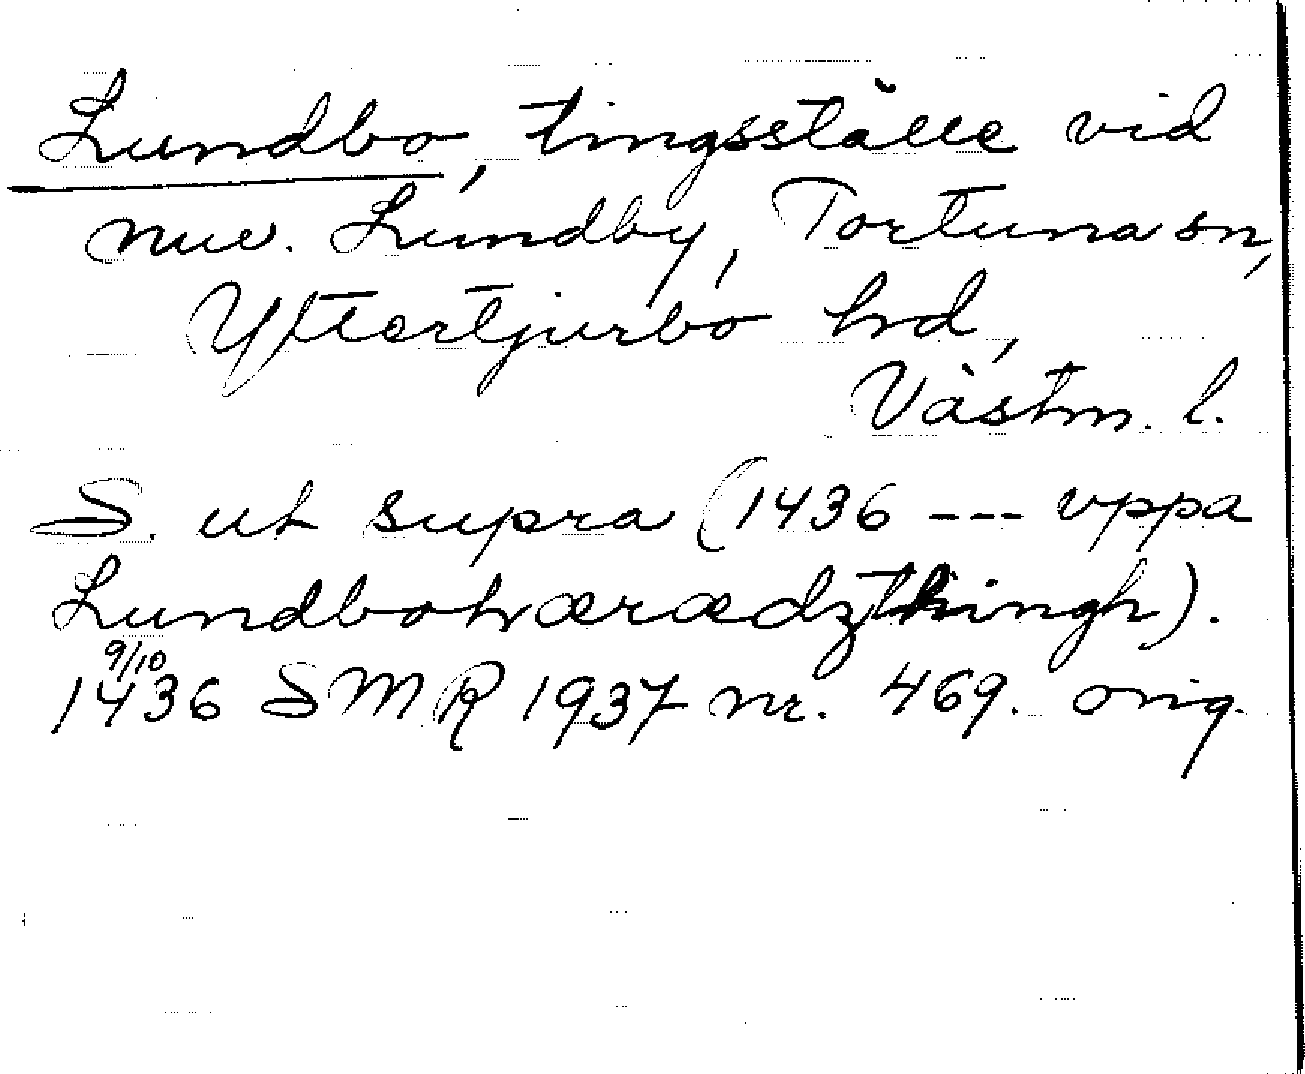 Lundbo, tingsställe vid
nuv. Lundby, Tortuna sn,
Yttertjurbo hd,
Västm. l.
S. ut supra (1436 --- vppa
Lundbohærædzthingh).
9/10
1436 SMR 1937 nr. 469. orig.